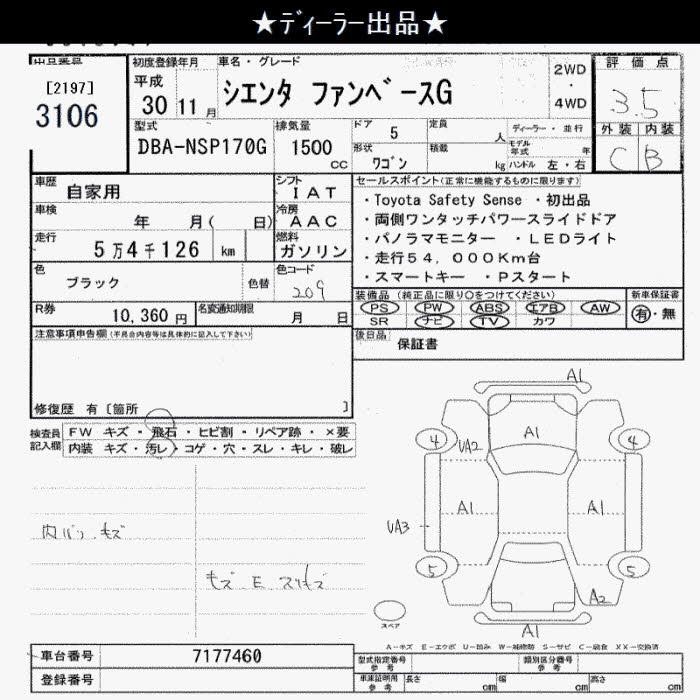 ★ディーラー出品★
出品番号
[2197]
3106
初度登録年月
平成
30年11月
車名・グレード
シエンタ ファンベースG
2WD
・
4WD
評価点
3.5
外装 内装
C B
型式
DBA-NSP170G
排気量
1500 cc
ドア 5
定員 人
形状 ワゴン
積載 kg
ディーラー・並行
モデル年式 年
ハンドル 左・右
車歴 自家用
車検 年 月( 日)
走行 5万4千126 km
シフト IAT
冷房 AAC
燃料 ガソリン
色 ブラック
色替
色コード 209
R券 10,360円
名変通知期限 月 日
セールスポイント(正常に機能するものに限ります)
・Toyota Safety Sense ・初出品
・両側ワンタッチパワースライドドア
・パノラマモニター ・LEDライト
・走行54,000Km台
・スマートキー ・Pスタート
装備品 (純正品に限り○をつけてください)
PS PW ABS エアB AW
SR ナビ TV カワ
新車保証書
有・無
後日品 保証書
注意事項申告欄(不具合内容等は具体的に記入して下さい)
修復歴 有〔箇所 〕
検査員記入欄
FW キズ・飛石・ヒビ割・リペア跡・×要
内装 キズ・汚レ・コゲ・穴・スレ・キレ・破レ
内バリ キズ
キズ E スリキズ
A1
4 UA2 A1 4
A1 A1
UA3
5 5
A2
A1
スペア
A-キズ E-エクボ U-凹み W-補修跡 S-サビ C-腐食 XX-交換済
車台番号 7177460
登録番号
型式指定番号 参考
類別区分番号 参考
車庫証明用 参考
長さ cm
幅 cm
高さ cm